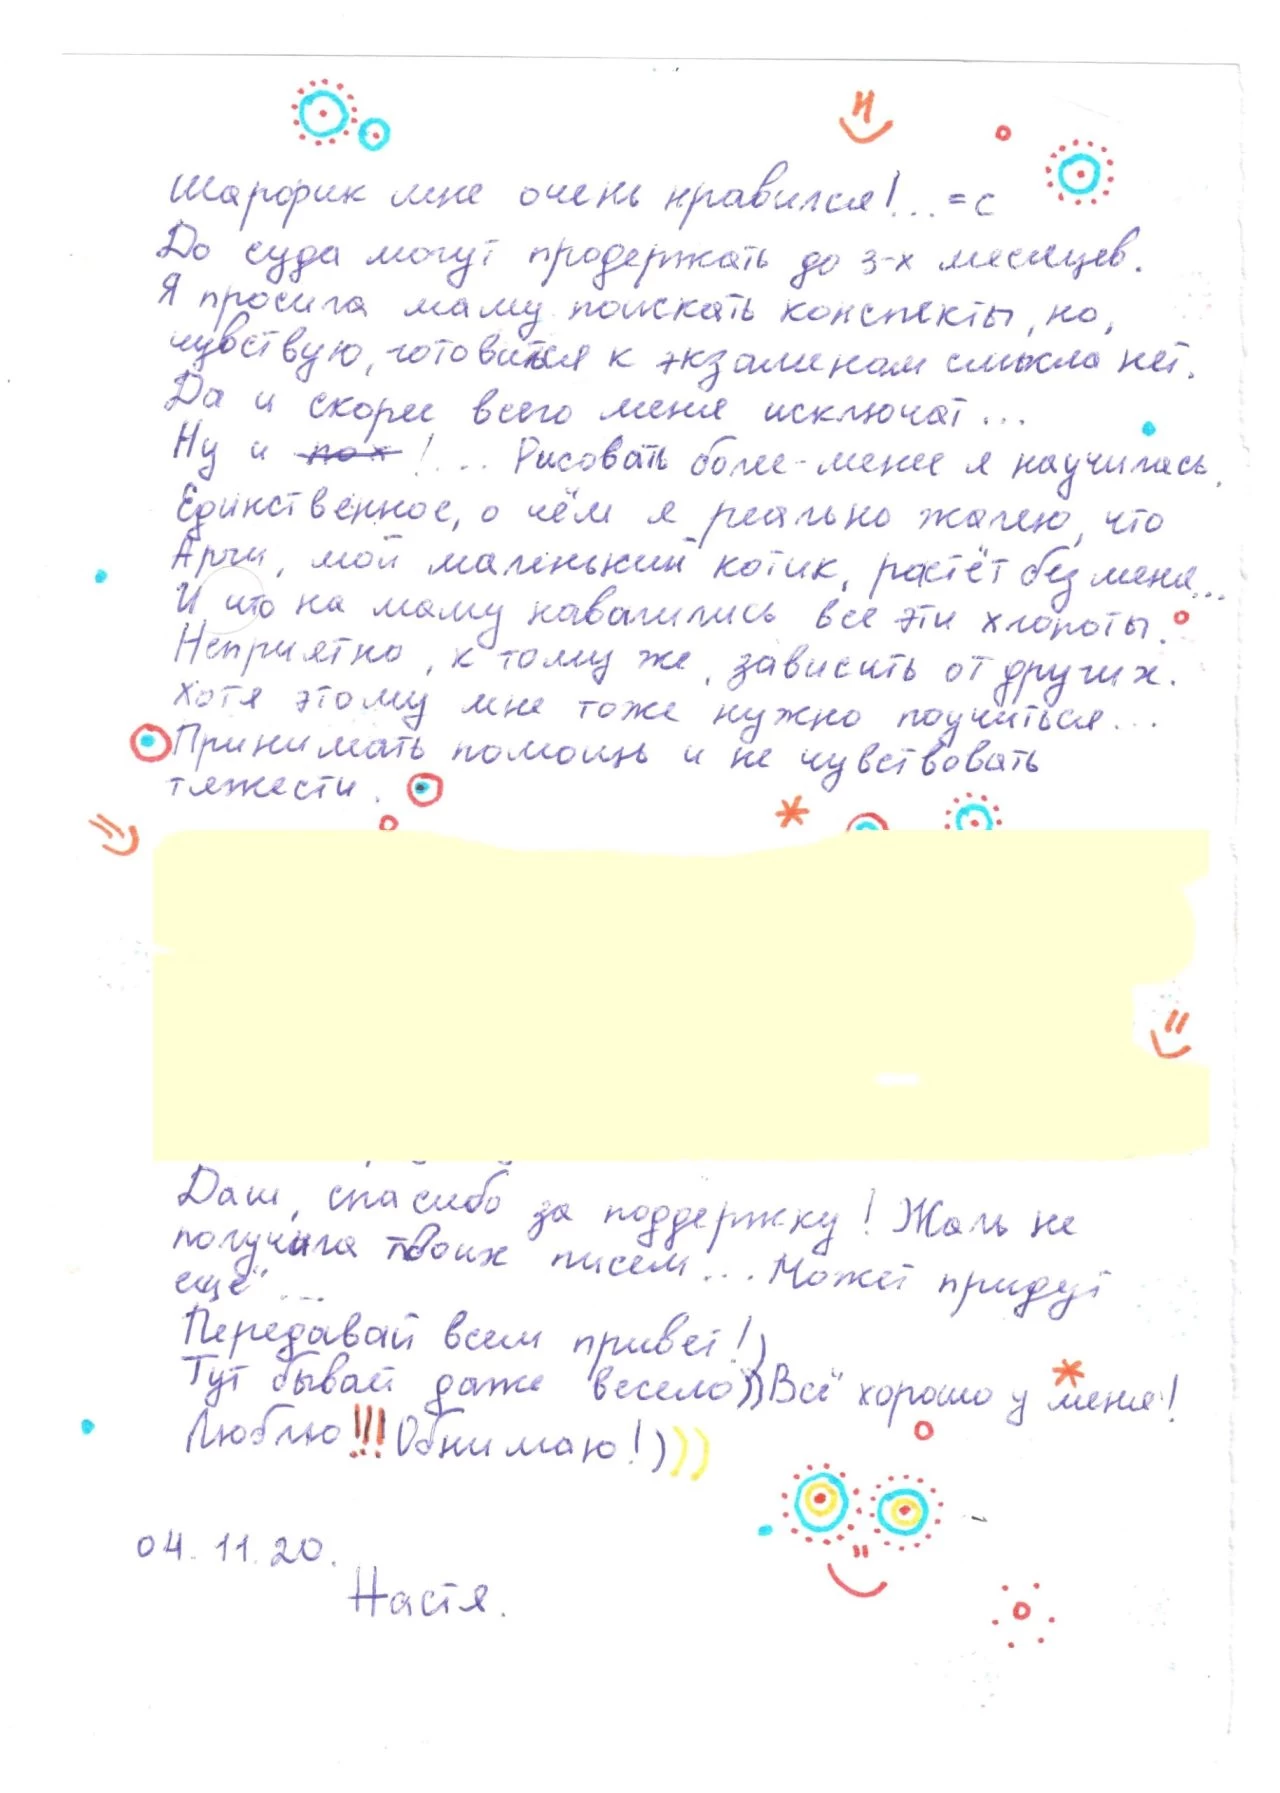 Шарфик мне очень нравился!... =с
До суда могут продержать до 3-х месяцев.
Я просила маму поискать конспекты, но,
чувствую, готовиться к экзаменам смысла нет.
Да и скорее всего меня исключат...
Ну и пох!... Рисовать более-менее я научилась.
Единственное, о чём я реально жалею, что
Арчи, мой маленький котик, растёт без меня...
И что на маму навалились все эти хлопоты.
Неприятно, к тому же, зависить от других.
Хотя этому мне тоже нужно поучиться...
Принимать помощь и не чувствовать
тяжести.
Даш, спасибо за поддержку! Жаль не
получила твоих писем... Может придут
ещё...
Передавай всем привет!)
Тут бывай даже весело))) Всё хорошо у меня!
Люблю!!! Обнимаю!)))
04.11.20.
Настя.